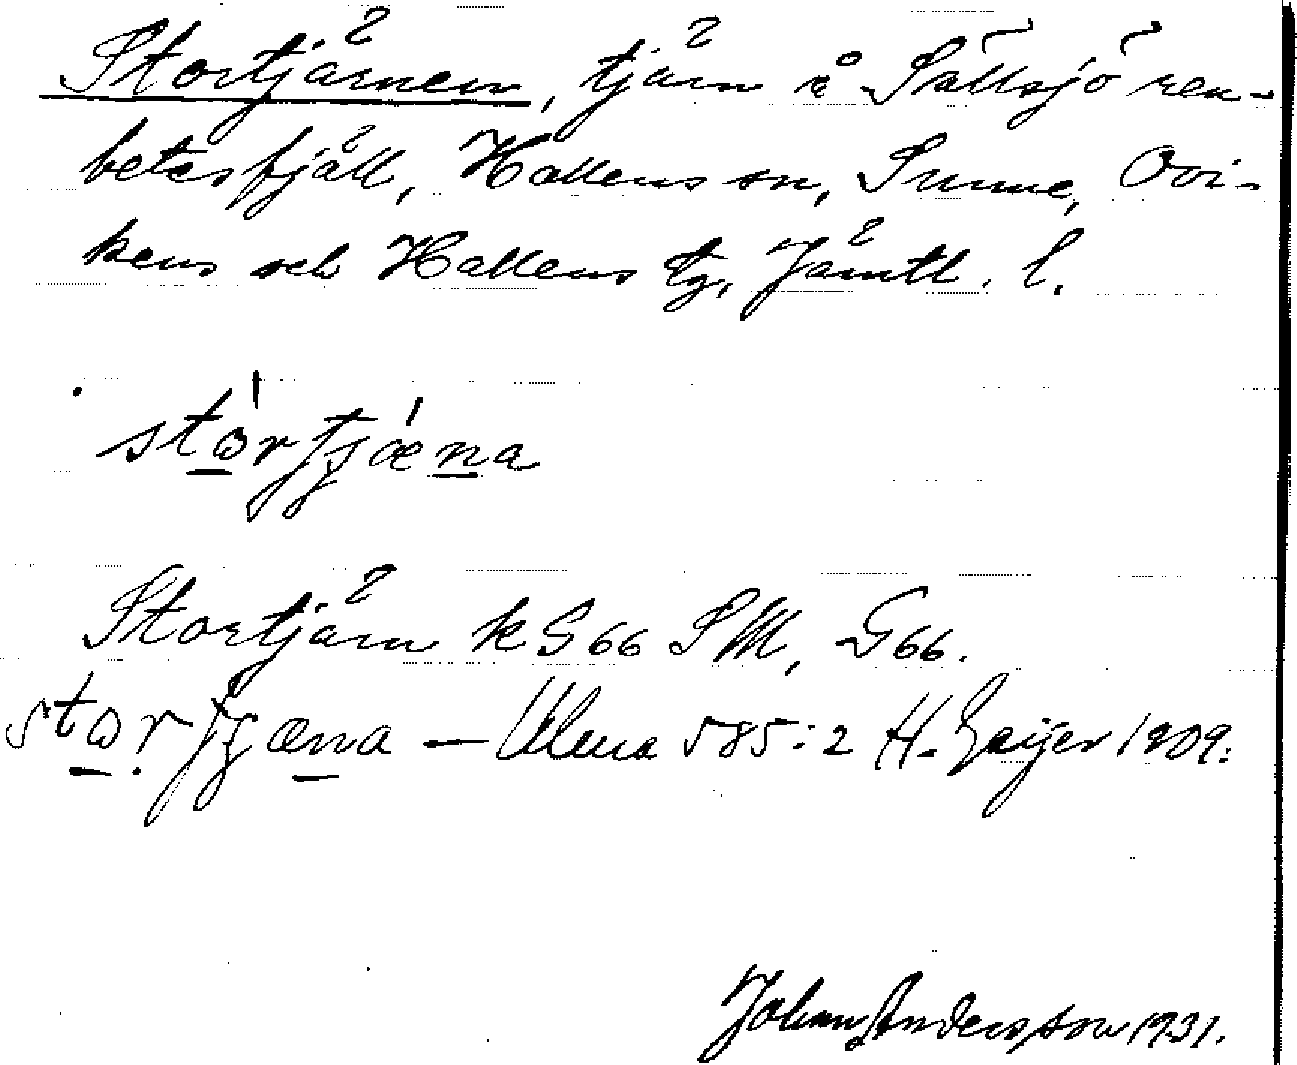 Stortjärnen, tjärn å Sällsjö ren-
betesfjäll, Hallens sn, Sunne, Ovi-
kens och Hallens tg, Jämtl. l.
stòrtjæna
Stortjärn k G66 SM, G66.
stortjæna — Ulma 585:2 H. Geijer 1909.
Johan Andersson 1931.